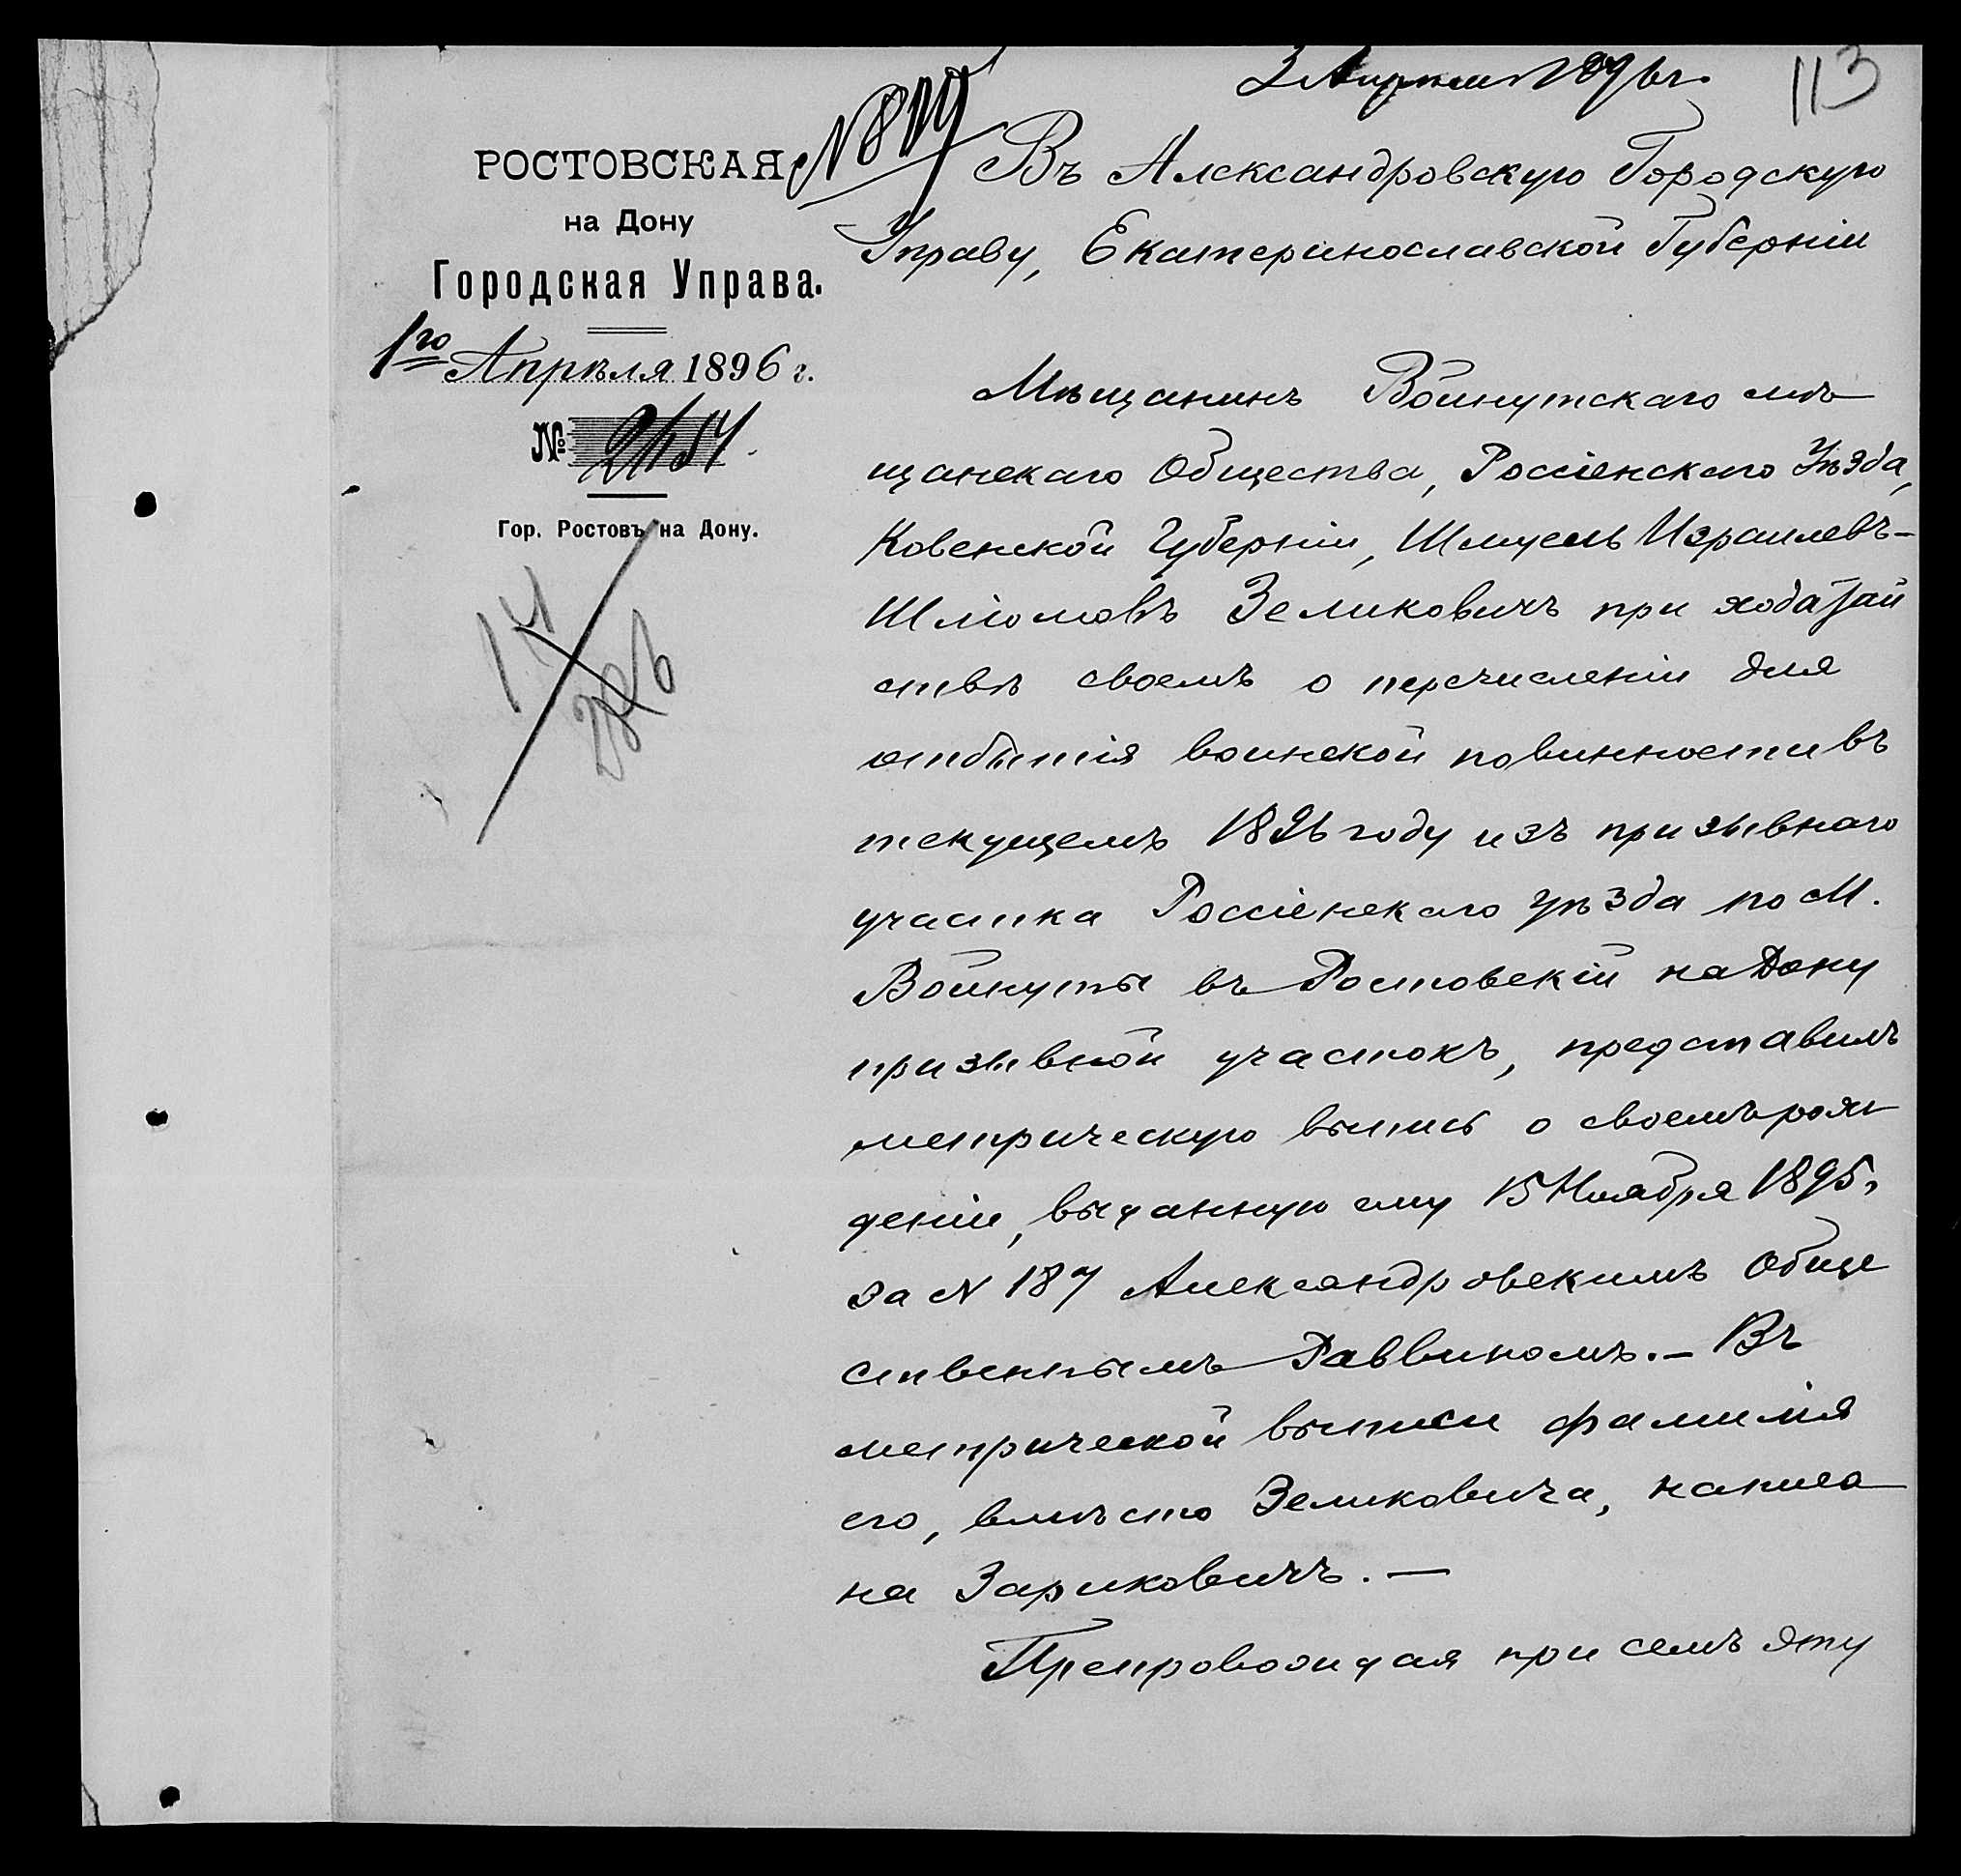 3 Апрѣля 1896 г.
113
РОСТОВСКАЯ
на Дону
Городская Управа.
1го Апрѣля 1896 г.
№
Гор. Ростовъ на Дону.
Въ Александровскую Городскую
Управу, Екатеринославской Губерніи
Мѣщанинъ Войнутскаго мѣ
щанскаго Общества, Россіенскаго Уѣзда,
Ковенской Губерніи, Шмуель Израилевъ-
Шліомовъ Зеликовичъ при ходатай
ствѣ своемъ о перечисленіи для
отбытія воинской повинности въ
текущемъ 1896 году изъ призывнаго
участка Россіенскаго уѣзда по М.
Войнуты въ Ростовскій на Дону
призывной участокъ, представилъ
метрическую выпись о своемъ рож
деніи, выданную ему 15 Ноября 1895 г
за N 187 Александровскимъ Обще
ственнымъ Раввиномъ. — Въ
метрической выписи фамилія
его, вмѣсто Зеликовича, написа
на Зариковичъ. —
Препровождая при семъ эту